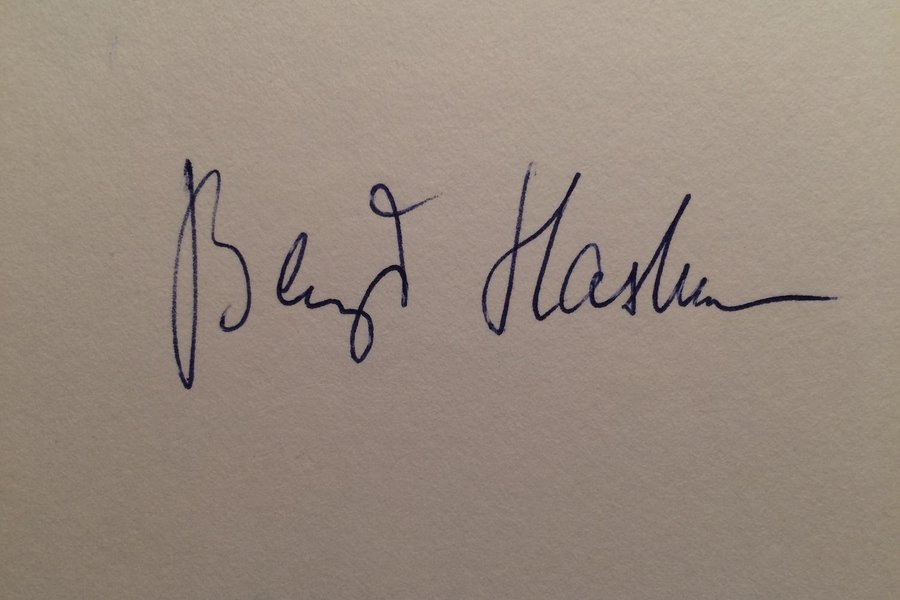 Bengt Haslum